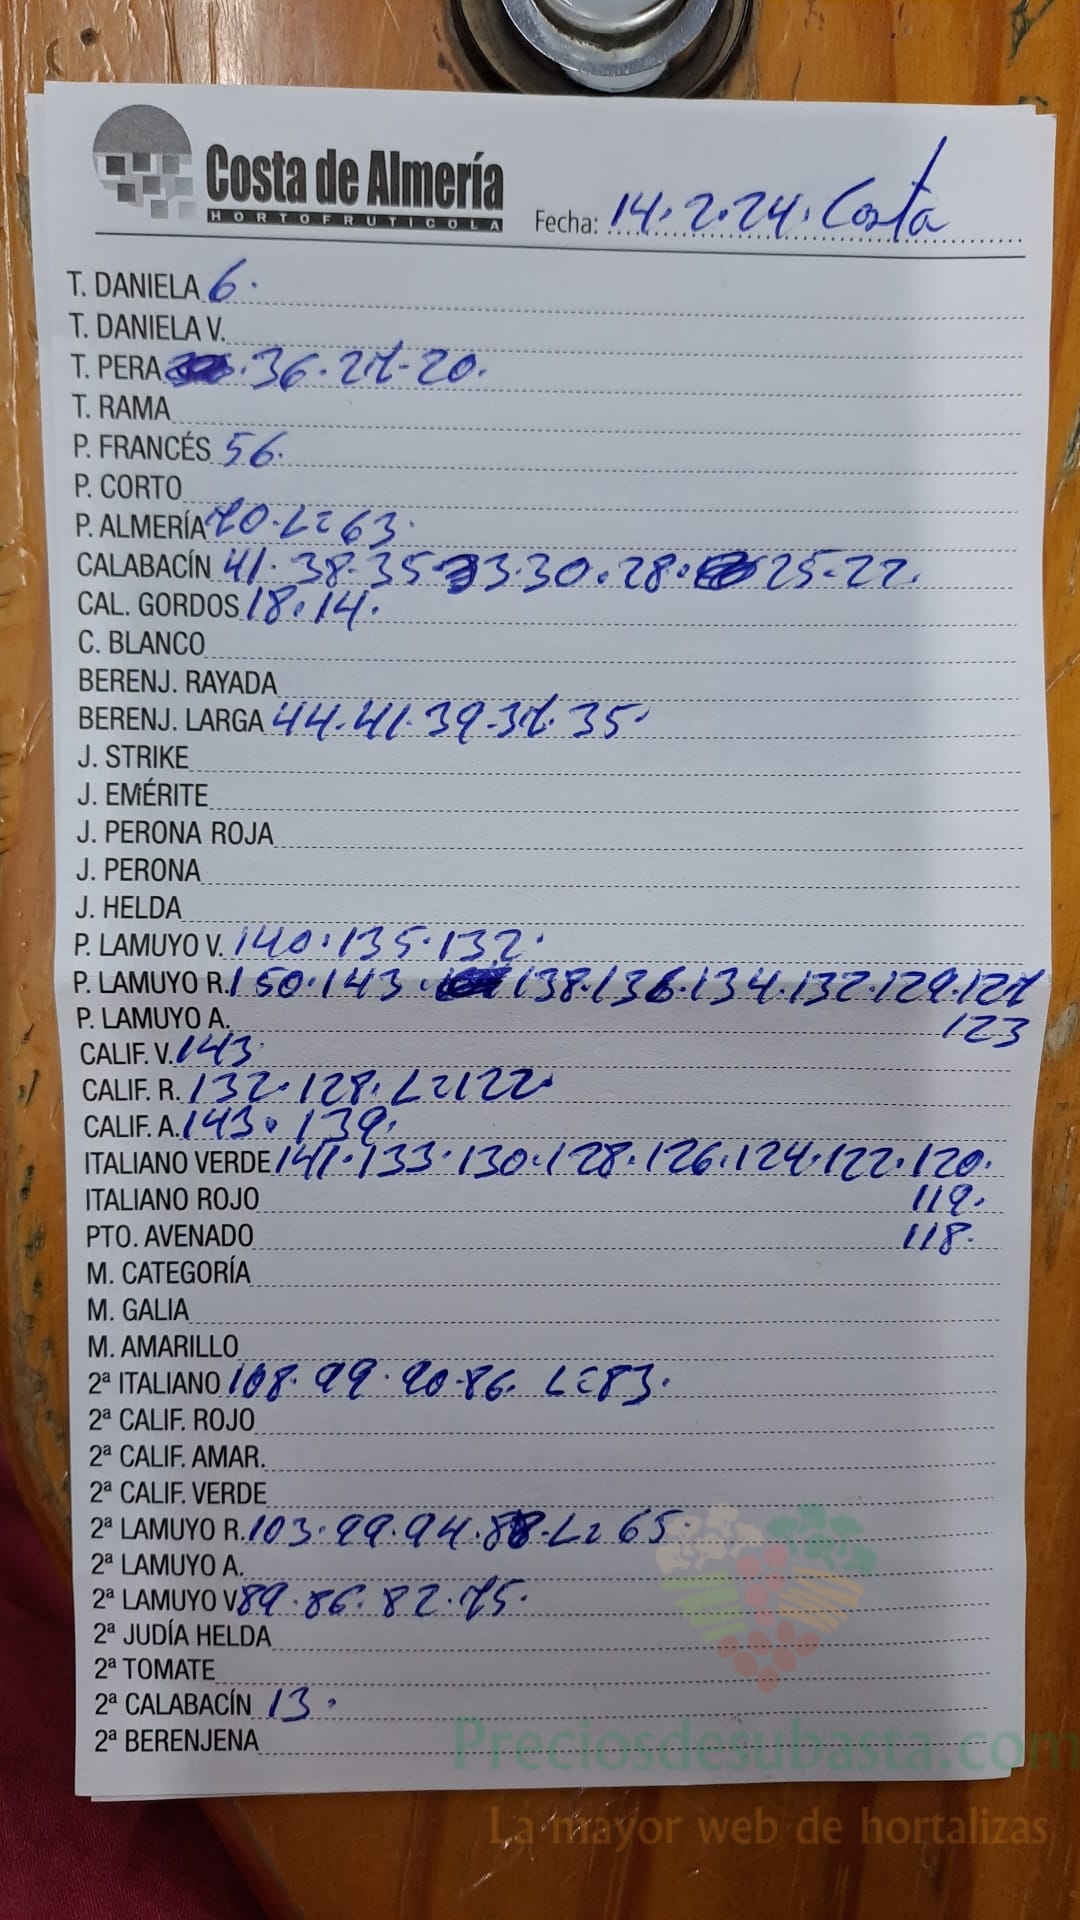 Costa de Almería
HORTOFRUTICOLA
Fecha: 14.2.24. Costa
T. DANIELA 6.
T. DANIELA V.
T. PERA 36.27-20.
T. RAMA
P. FRANCÉS 56.
P. CORTO
P. ALMERÍA 70.L=63.
CALABACÍN 41.38.35 33.30.28. 25-22.
CAL. GORDOS 18.14.
C. BLANCO
BERENJ. RAYADA
BERENJ. LARGA 44.41.39.37.35.
J. STRIKE
J. EMÉRITE
J. PERONA ROJA
J. PERONA
J. HELDA
P. LAMUYO V. 140.135.132.
P. LAMUYO R. 150.143. 138.136.134.132.129.127
P. LAMUYO A. 123
CALIF. V. 143.
CALIF. R. 132.128.L=122.
CALIF. A. 143.139.
ITALIANO VERDE 141.133.130.128.126.124.122.120.
ITALIANO ROJO 119.
PTO. AVENADO 118.
M. CATEGORÍA
M. GALIA
M. AMARILLO
2ª ITALIANO 108.99.90.86. L=83.
2ª CALIF. ROJO
2ª CALIF. AMAR.
2ª CALIF. VERDE
2ª LAMUYO R. 103.99.94.88.L=65
2ª LAMUYO A.
2ª LAMUYO V. 89.86.82.75.
2ª JUDÍA HELDA
2ª TOMATE
2ª CALABACÍN 13.
2ª BERENJENA
Preciosdesubasta.com
La mayor web de hortalizas